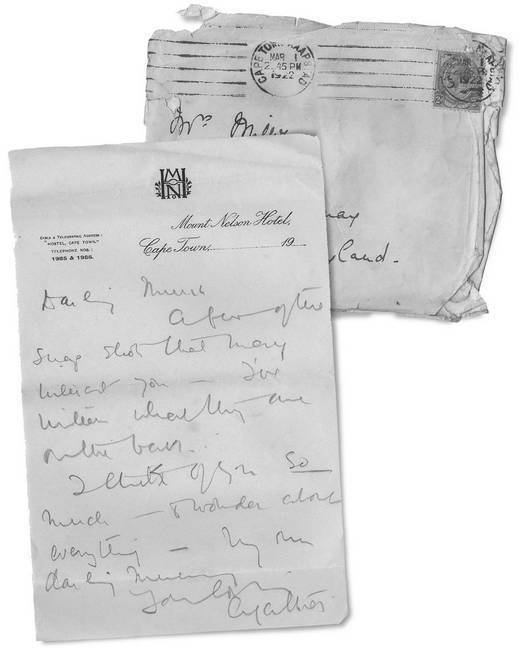 CAPE TOWN KAAPSTAD
MAR 1
2.45 PM
1922
Mrs Miller
land.
MHN
Mount Nelson Hotel,
Cape Town, 19
CABLE & TELEGRAPHIC ADDRESS:
"HOSTEL, CAPE TOWN."
TELEPHONE NOS:
1985 & 1986.
Darling
A few of the
Snap shots that may
interest you – I've
written what they are
on the back.
I think of you so
much – & wonder about
everything – My own
darling
Your loving
Agatha.